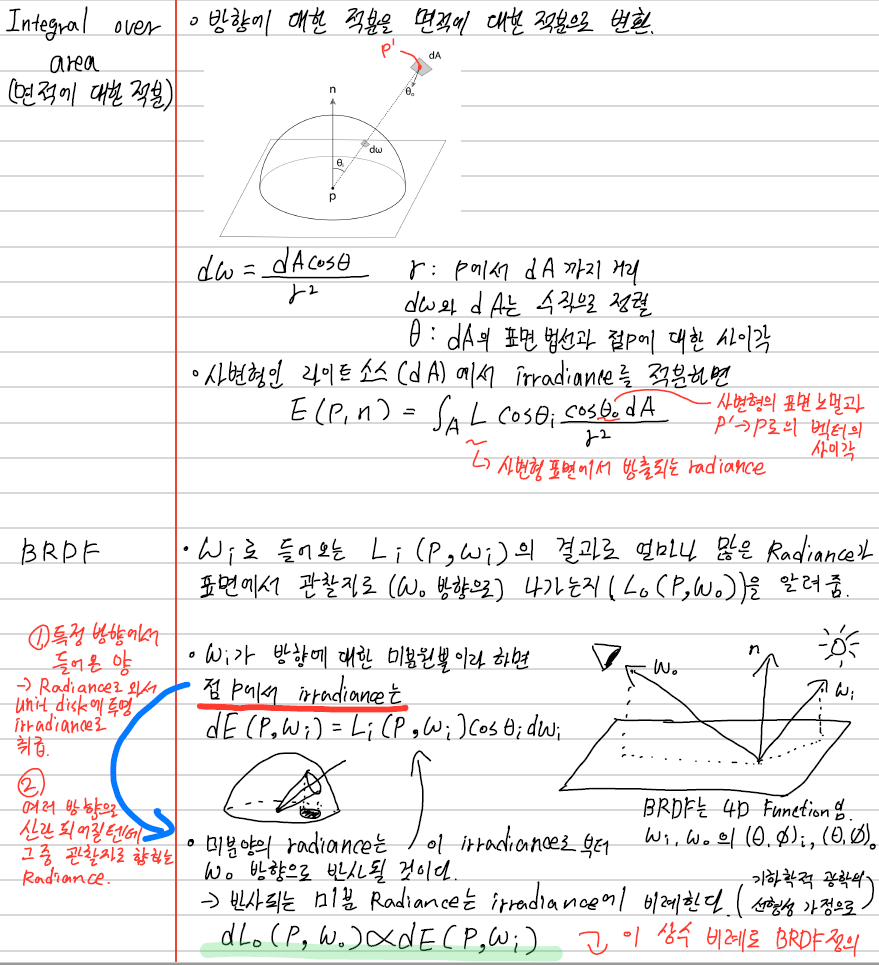 Integral over
area
(면적에 대한 적분)
◦ 방향에 대한 적분을 면적에 대한 적분으로 변환.
P'
dA
θₒ
n
dω
θᵢ
p
dω = dA cosθ / r²
r : P에서 dA 까지 거리
dω와 dA는 수직으로 정렬
θ : dA의 표면 법선과 점P에 대한 사이각
• 사변형인 라이트 소스(dA)에서 irradiance를 적분하면
E(P, n) = ∫_A L cosθᵢ cosθₒ dA / r²
사변형의 표면 노멀과
P'→P로의 벡터의
사이각
↳ 사변형 표면에서 방출되는 radiance
BRDF
• ωᵢ로 들어오는 Lᵢ(P, ωᵢ)의 결과로 얼마나 많은 Radiance가
표면에서 관찰자로 (ωₒ 방향으로) 나가는지 (Lₒ(P, ωₒ))을 알려줌.
① 특정 방향에서
들어온 양
→ Radiance로 와서
unit disk에 투영
irradiance로
취급.
②
여러 방향으로
산란 되어질텐데
그 중 관찰자로 향하는
Radiance.
• ωᵢ가 방향에 대한 미분원뿔이라 하면
점 P에서 irradiance는
dE(P, ωᵢ) = Lᵢ(P, ωᵢ)cosθᵢ dωᵢ
ωₒ
n
ωᵢ
BRDF는 4D Function임.
ωᵢ, ωₒ의 (θ, ∅)ᵢ, (θ, ∅)ₒ
• 미분양의 radiance는 이 irradiance로 부터
ωₒ 방향으로 반사될 것이다.
→ 반사되는 미분 Radiance는 irradiance에 비례한다. (기하학적 광학의
선형성 가정으로)
dLₒ(P, ωₒ) ∝ dE(P, ωᵢ)
이 상수 비례로 BRDF 정의